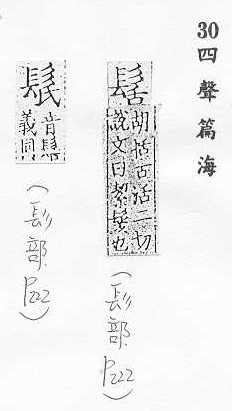 30 四聲篇海
髺
胡括古活二切
說文曰絜髮也
(髟部 P222)
音髺
義同
(髟部 P222)